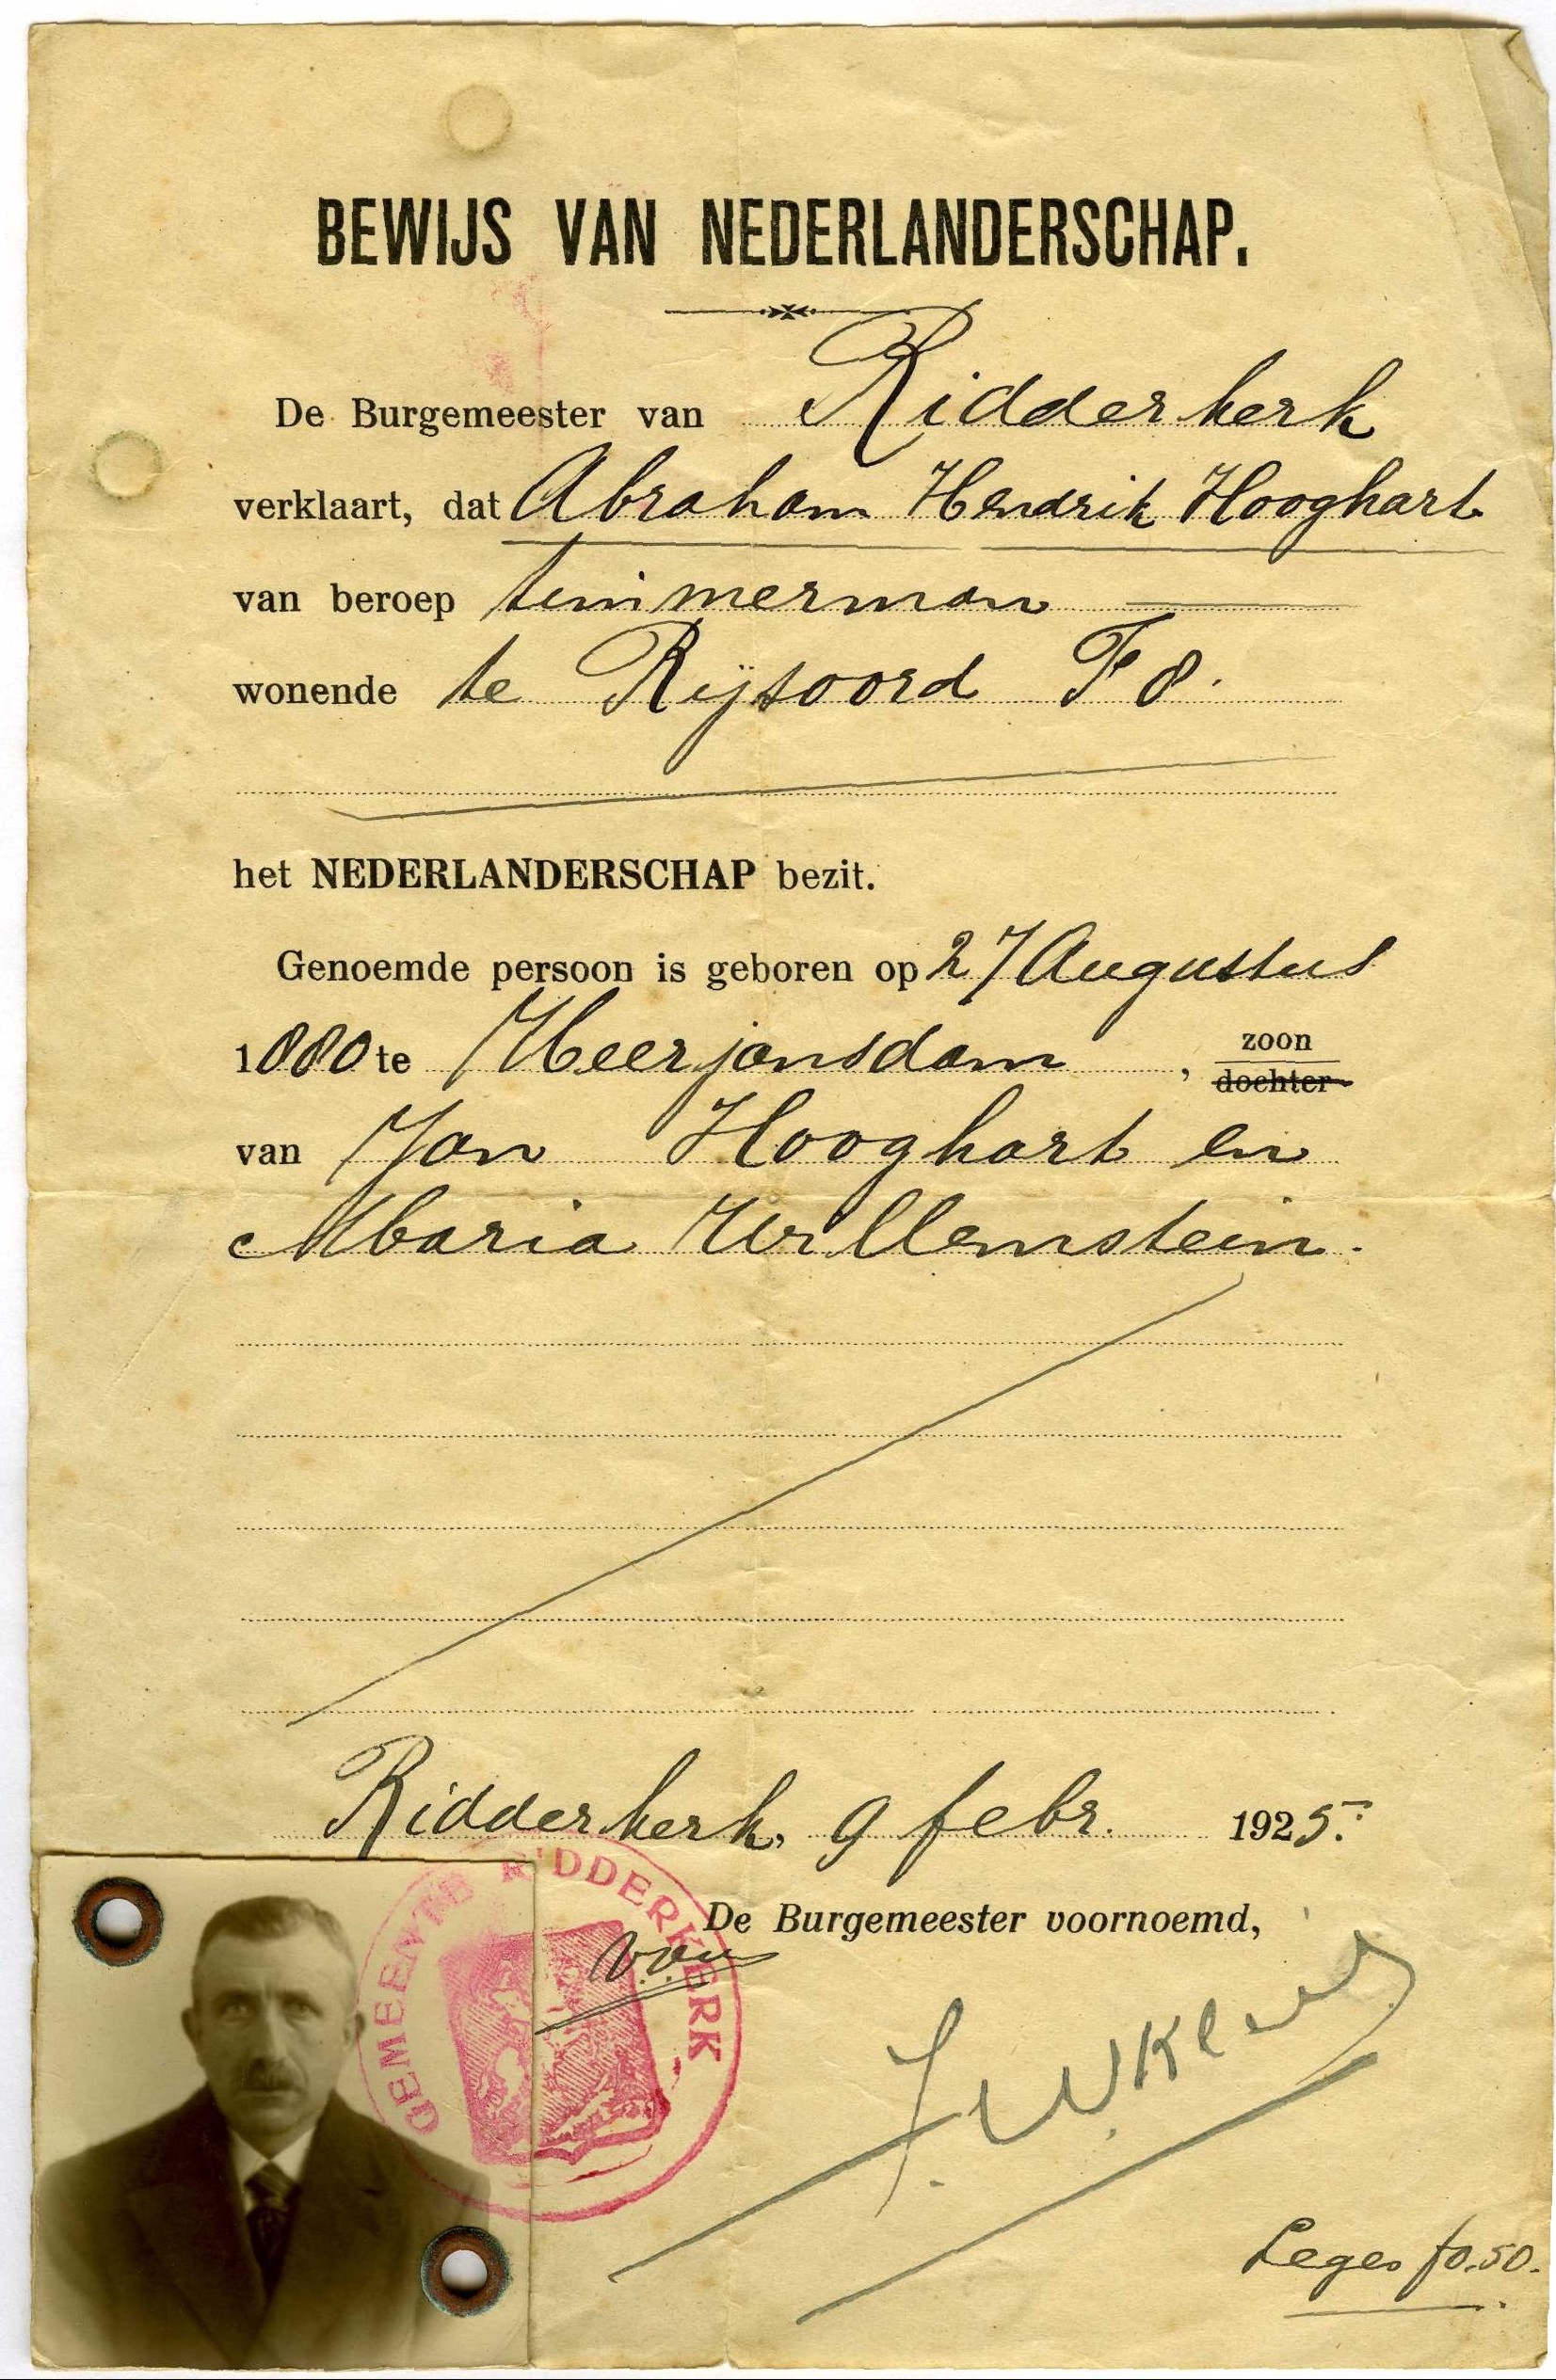 BEWIJS VAN NEDERLANDERSCHAP.
De Burgemeester van Ridderkerk
verklaart, dat Abraham Hendrik Hooghart
van beroep timmerman
wonende te Rijsoord F 8.
het NEDERLANDERSCHAP bezit.
Genoemde persoon is geboren op 27 Augustus
1880 te Heerjansdam, zoon
dochter
van Jan Hooghart en
Maria Willemstein.
Ridderkerk, 9 febr. 1925.
GEMEENTE RIDDERKERK
De Burgemeester voornoemd,
Leges f 0.50.